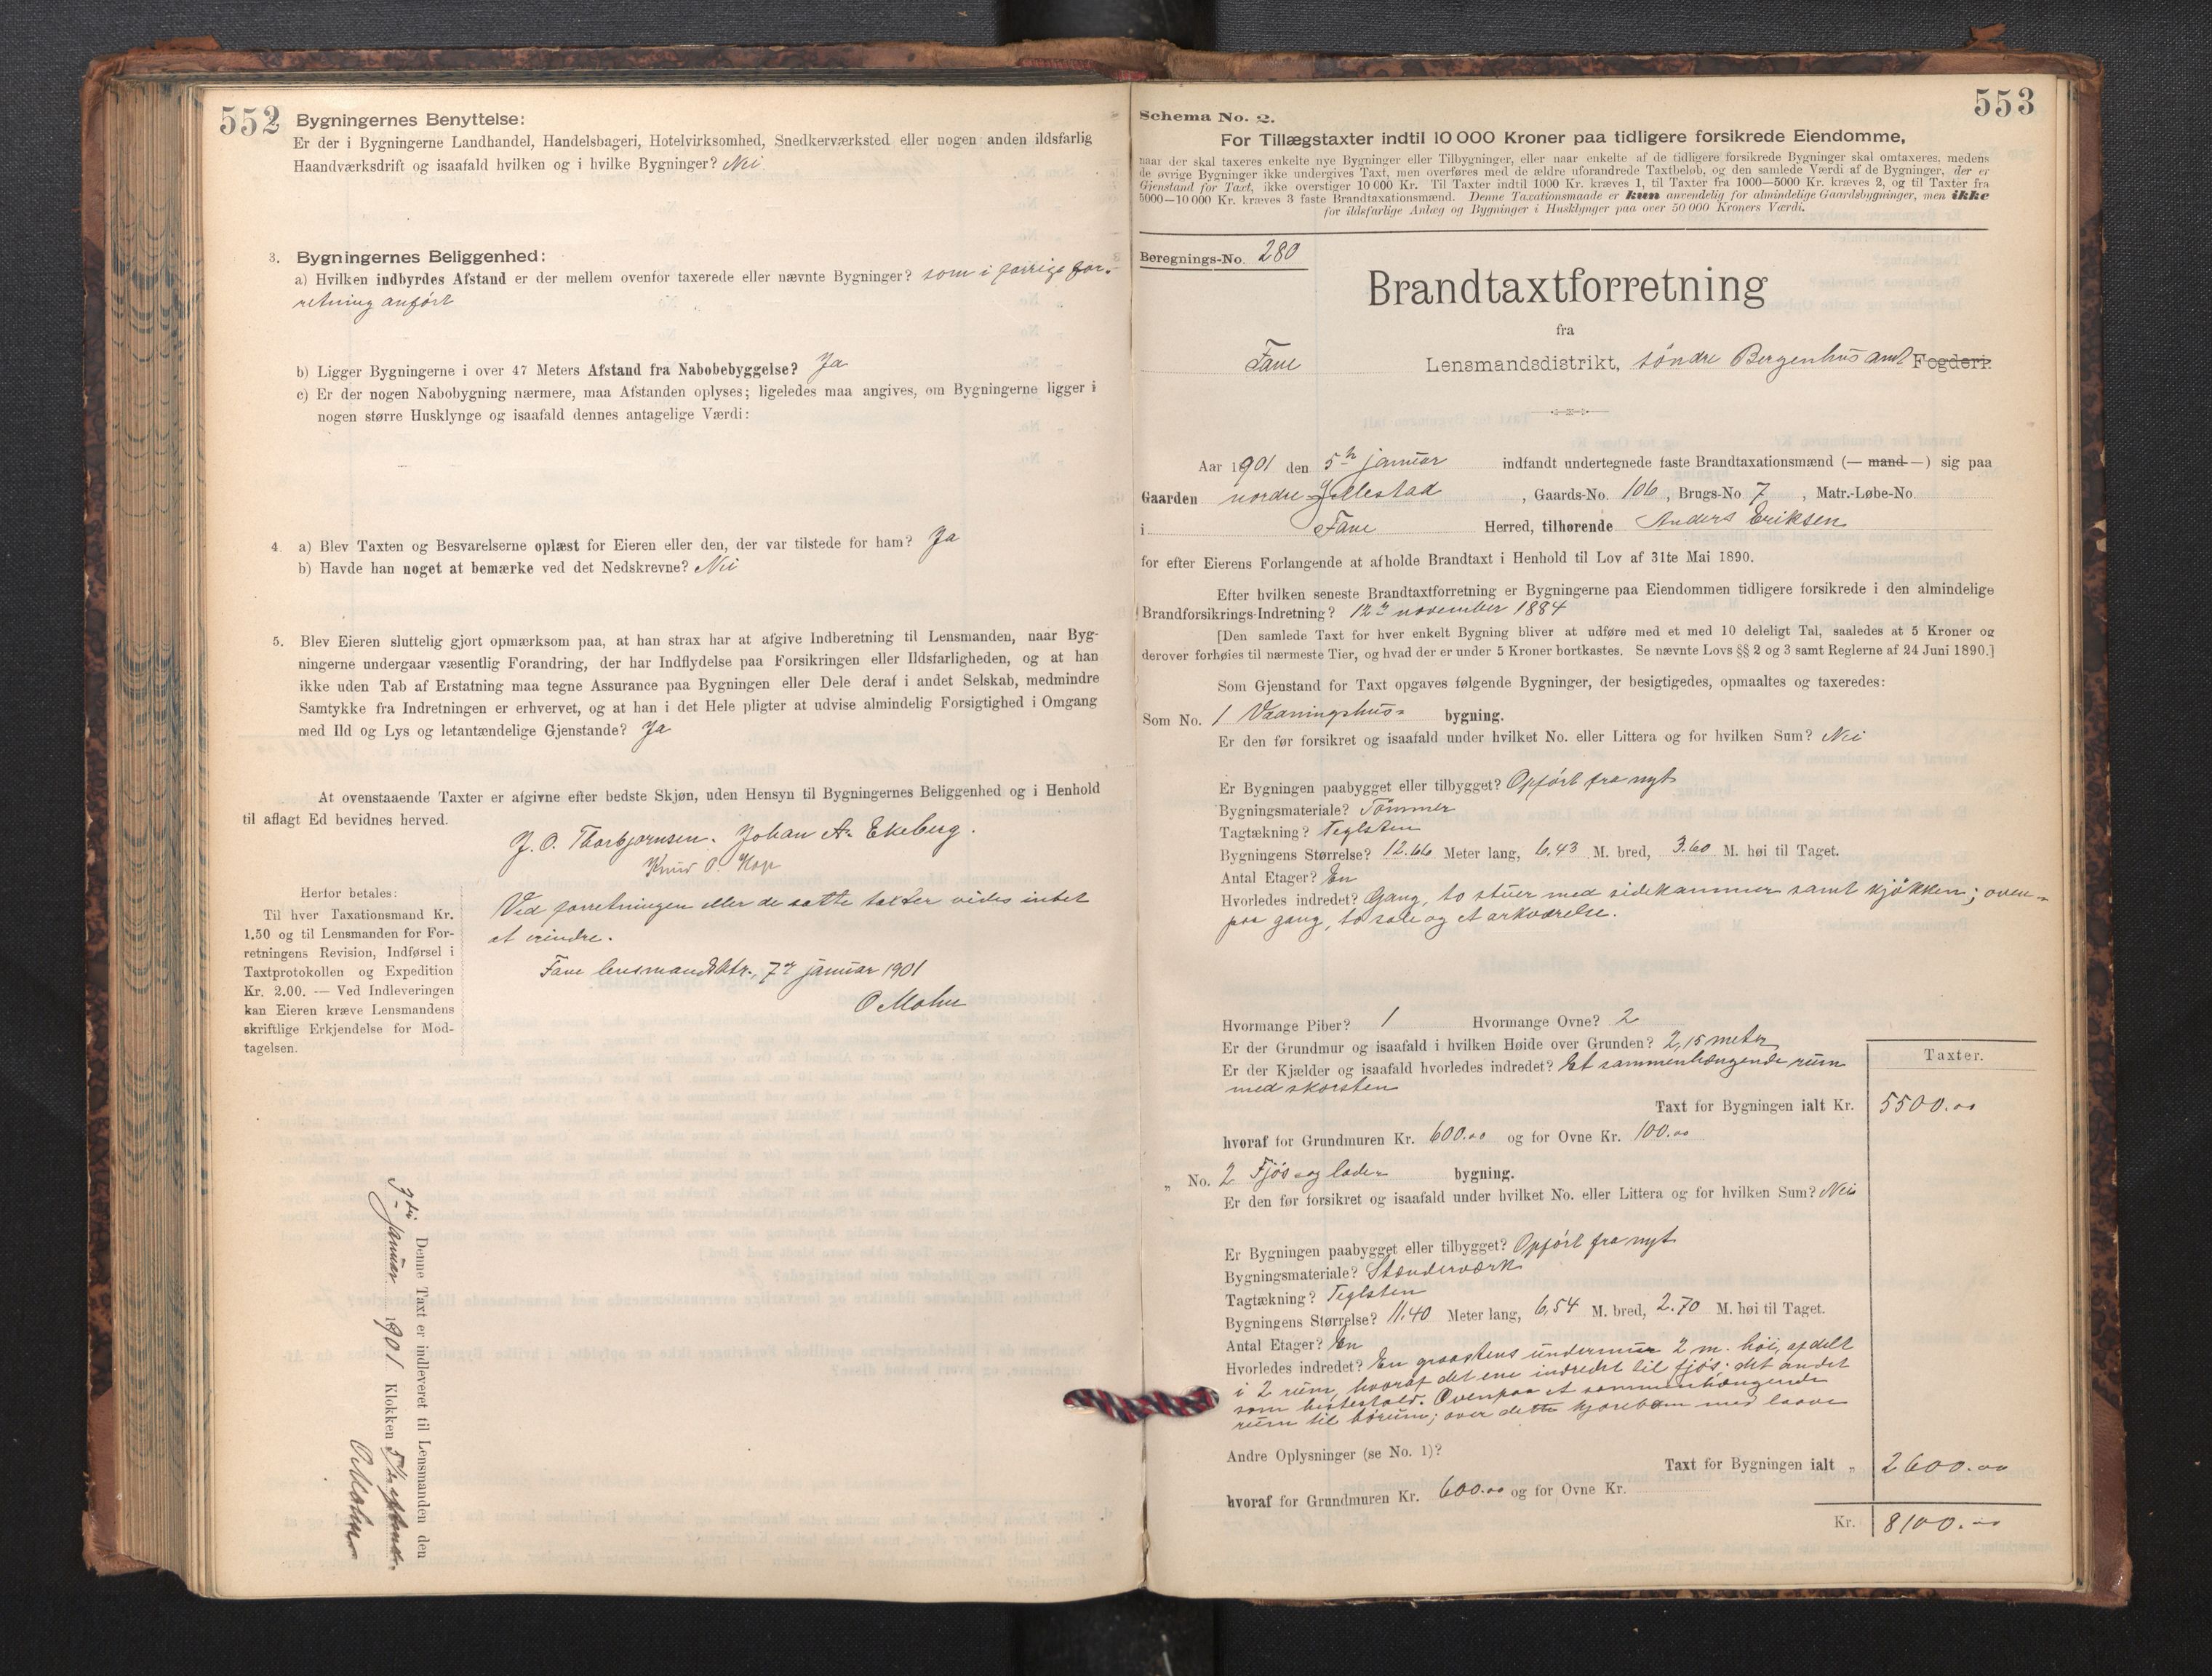 552
Bygningernes Benyttelse:
Er der i Bygningerne Landhandel, Handelsbageri, Hotelvirksomhed, Snedkerværksted eller nogen anden ildsfarlig
Haandværksdrift og isaafald hvilken og i hvilke Bygninger? Nei.
3. Bygningernes Beliggenhed:
a) Hvilken indbyrdes Afstand er der mellem ovenfor taxerede eller nævnte Bygninger? som i forrige for-
retning anført
b) Ligger Bygningerne i over 47 Meters Afstand fra Nabobebyggelse? Ja
c) Er der nogen Nabobygning nærmere, maa Afstanden oplyses; ligeledes maa angives, om Bygningerne ligger i
nogen større Husklynge og isaafald dennes antagelige Værdi:
4. a) Blev Taxten og Besvarelserne oplæst for Eieren eller den, der var tilstede for ham? Ja
b) Havde han noget at bemærke ved det Nedskrevne? Nei
5. Blev Eieren sluttelig gjort opmærksom paa, at han strax har at afgive Indberetning til Lensmanden, naar Byg-
ningerne undergaar væsentlig Forandring, der har Indflydelse paa Forsikringen eller Ildsfarligheden, og at han
ikke uden Tab af Erstatning maa tegne Assurance paa Bygningen eller Dele deraf i andet Selskab, medmindre
Samtykke fra Indretningen er erhvervet, og at han i det Hele pligter at udvise almindelig Forsigtighed i Omgang
med Ild og Lys og letantændelige Gjenstande? Ja
At ovenstaaende Taxter er afgivne efter bedste Skjøn, uden Hensyn til Bygningernes Beliggenhed og i Henhold
til aflagt Ed bevidnes herved.
J. O. Thorbjørnsen. Johan A. Ekeberg.
Knud P. Hop
Herfor betales:
Til hver Taxationsmand Kr.
1.50 og til Lensmanden for For-
retningens Revision, Indførsel i
Taxtprotokollen og Expedition
Kr. 2.00. — Ved Indleveringen
kan Eieren kræve Lensmandens
skriftlige Erkjendelse for Mod-
tagelsen.
Ved forretningen eller de satte taxter vides intet
at erindre.
Fane lensmandsktr., 7de januar 1901
O Mohn
Denne Taxt er indleveret til Lensmanden den
januar 1901 Klokken 5½
O Mohn
553
Schema No. 2.
For Tillægstaxter indtil 10 000 Kroner paa tidligere forsikrede Eiendomme,
naar der skal taxeres enkelte nye Bygninger eller Tilbygninger, eller naar enkelte af de tidligere forsikrede Bygninger skal omtaxeres, medens
de øvrige Bygninger ikke undergives Taxt, men overføres med de ældre uforandrede Taxtbeløb, og den samlede Værdi af de Bygninger, der er
Gjenstand for Taxt, ikke overstiger 10 000 Kr. Til Taxter indtil 1000 Kr. kræves 1, til Taxter fra 1000—5000 Kr. kræves 2, og til Taxter fra
5000—10 000 Kr. kræves 3 faste Brandtaxationsmænd. Denne Taxationsmaade er kun anvendelig for almindelige Gaardsbygninger, men ikke
for ildsfarlige Anlæg og Bygninger i Husklynger paa over 50 000 Kroners Værdi.
Beregnings-No. 280
Brandtaxtforretning
fra
Fane Lensmandsdistrikt, søndre Bergenhus amt Fogderi.
Aar 1901 den 5te januar indfandt undertegnede faste Brandtaxationsmænd (— mand —) sig paa
Gaarden nordre , Gaards-No. 106, Brugs-No 7, Matr.-Løbe-No.
i Fane Herred, tilhørende Anders Eriksen
for efter Eierens Forlangende at afholde Brandtaxt i Henhold til Lov af 31te Mai 1890.
Efter hvilken seneste Brandtaxtforretning er Bygningerne paa Eiendommen tidligere forsikrede i den almindelige
Brandforsikrings-Indretning? 12te november 1884
[Den samlede Taxt for hver enkelt Bygning bliver at udføre med et med 10 deleligt Tal, saaledes at 5 Kroner og
derover forhøies til nærmeste Tier, og hvad der er under 5 Kroner bortkastes. Se nævnte Lovs §§ 2 og 3 samt Reglerne af 24 Juni 1890.]
Som Gjenstand for Taxt opgaves følgende Bygninger, der besigtigedes, opmaaltes og taxeredes:
Som No. 1 Vaaningshus- bygning.
Er den før forsikret og isaafald under hvilket No. eller Littera og for hvilken Sum? Nei
Er Bygningen paabygget eller tilbygget? Opført fra nyt
Bygningsmateriale? Tømmer
Tagtækning? Teglsten
Bygningens Størrelse? 12.66 Meter lang, 6.43 M. bred, 3.60 M. høi til Taget.
Antal Etager? En
Hvorledes indredet? Gang, to stuer med sidekammer samt kjøkken; oven-
paa gang, to sale og et arkværelse.
Hvormange Piber? 1 Hvormange Ovne? 2
Er der Grundmur og isaafald i hvilken Høide over Grunden? 2,15 meter
Er der Kjælder og isaafald hvorledes indredet? Et sammenhængende rum
med skorsten
Taxter.
Taxt for Bygningen ialt Kr. 5500.00
hvoraf for Grundmuren Kr. 600.00 og for Ovne Kr. 100.00
„ No. 2 Fjøs- og lade- bygning.
Er den før forsikret og isaafald under hvilket No. eller Littera og for hvilken Sum? Nei
Er Bygningen paabygget eller tilbygget? Opført fra nyt
Bygningsmateriale? Stænderværk
Tagtækning? Teglsten
Bygningens Størrelse? 11.40 Meter lang, 6,54 M. bred, 2.70 M. høi til Taget.
Antal Etager? En
Hvorledes indredet? En graastens undermur 2 m. høi, afdelt
i 2 rum, hvoraf det ene indredet til fjøs; det andet
som hestestald. Ovenpaa et sammenhængende
rum til hørum; over dette kjørebom med laave
Andre Oplysninger (se No. 1)?
Taxt for Bygningen ialt „ 2600.00
hvoraf for Grundmuren Kr. 600.00 og for Ovne Kr.
Kr. 8100.00